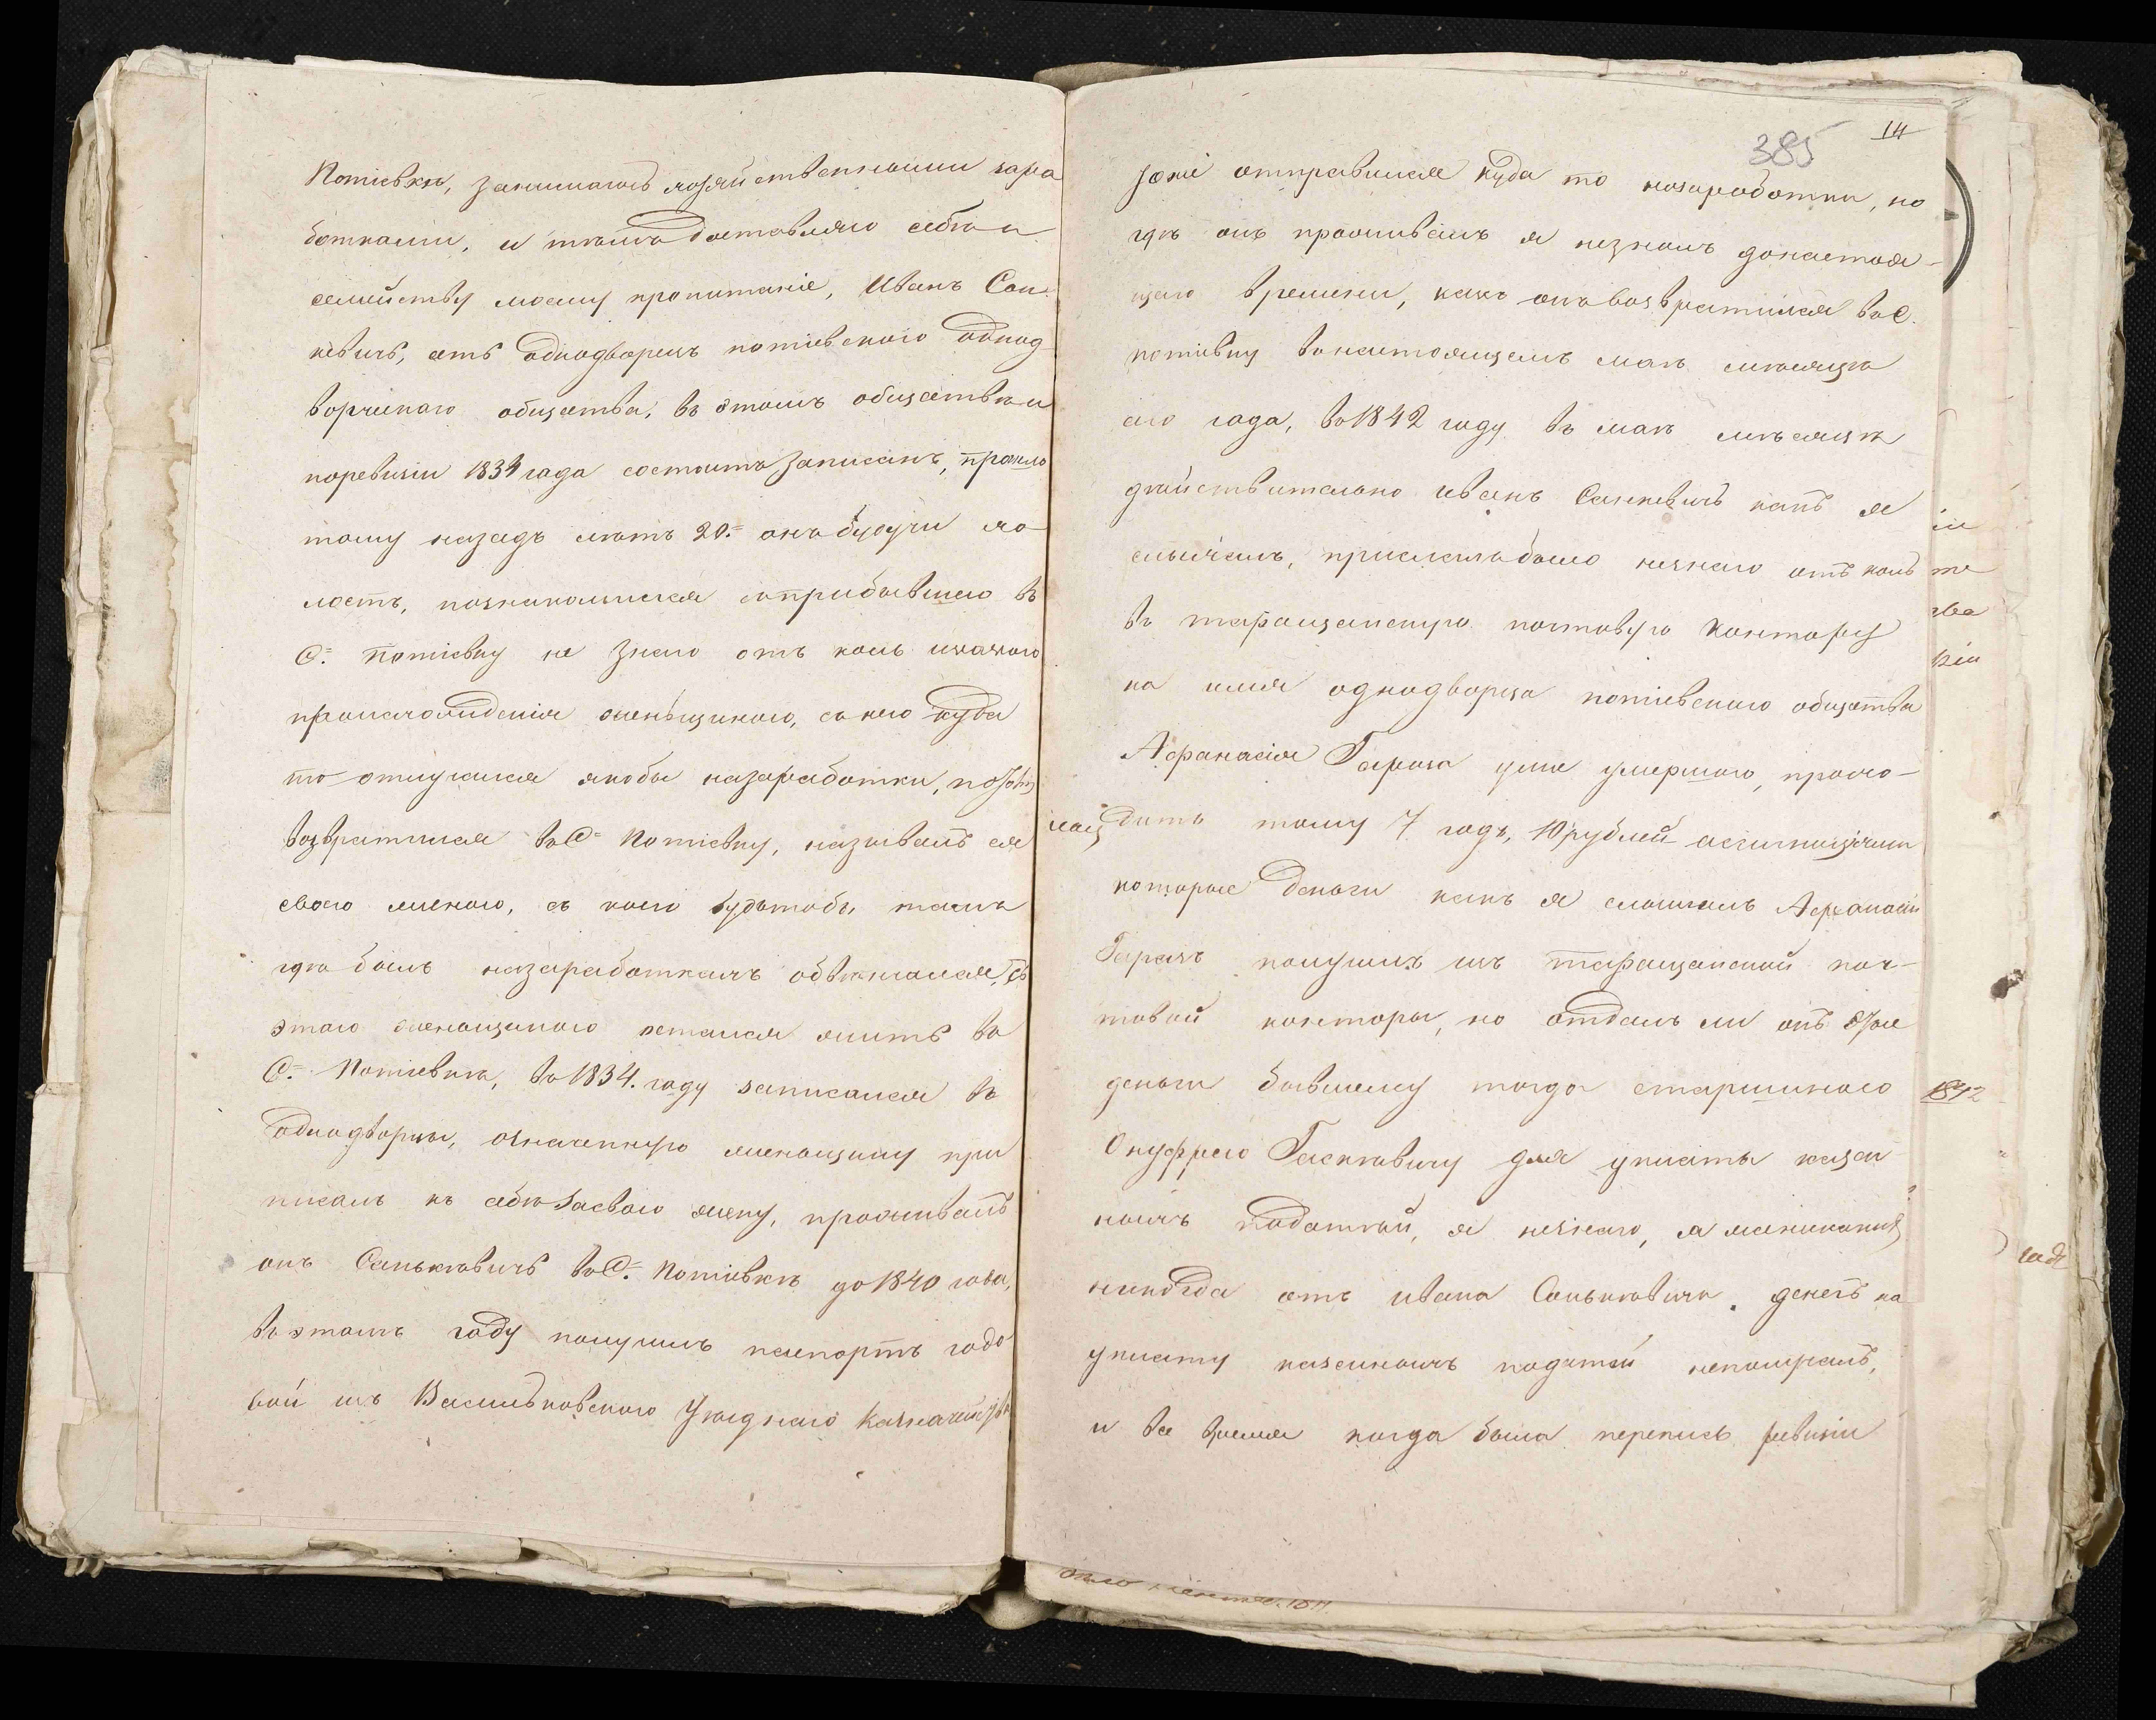 Потіевки, занимаюсь хозяйственными зара
ботками, и тѣмъ доставляю себѣ и
семейству моему пропитаніе, Иванъ Сан
кевичъ, есть однодворецъ потіевского однод
ворческаго общества, въ этомъ обществѣ и
поревизіи 1834 года состоитъ записанъ,
тому назадъ лѣтъ 20.= онъ будучи хо
лостъ, познакомился съ прибывшею въ
С.= Потіевку не знаю отъ коль какого
происхожденія женьщиною, съ нею куда
то отлучился якобы назаработки, и
возвратился въ С= Потіевку, называлъ ея
своею женою, съ коею будьтобы тамъ
гдѣ былъ назаработкахъ обвѣнчался, съ
этаго женощиного остался жить въ
С.= Потіевкѣ, въ 1834. году записался въ
однодворцы, означенную женощину при
писалъ къ себѣ засвою жену, проживалъ
онъ Санькѣвичъ въ С.= Потіевкѣ до 1840 года,
въ этомъ году получилъ паспортъ годо
вой изъ Васильковского Уѣзднаго Казначейства
385 14
отправился куда то назаработки, но
гдѣ онъ проживалъ я незналъ донастоя-
щаго времени, какъ онъ возвратился въ С.
потіевку внастоящемъ маѣ мѣсяцѣ
сего года, въ 1842 году въ маѣ мѣсяцѣ
дѣйствительно иванъ Санкевичъ какъ я
слышалъ, незнаю отъ коль
въ таращанскую почтовую Контору
на имя однодворца потіевского общества
Афанасія Гараза уже умершого, прохо-
дитъ тому 7 годъ, 10 рублей ассигнаціями
которые деньги какъ я слышалъ Афанасій
Гаразъ получилъ изъ таращанской поч-
товой конторы, но отдалъ ли онъ эѣые
деньги бывшему тогда старшиного
Онуфрею Гаскѣвичу для уплаты казен
ныхъ податей, я незнаю, а мени
никогда отъ ивана Санькѣвича денегъ на
уплату казенныхъ податей неполіралъ,
и все время когда была перепись ревизіи
1842